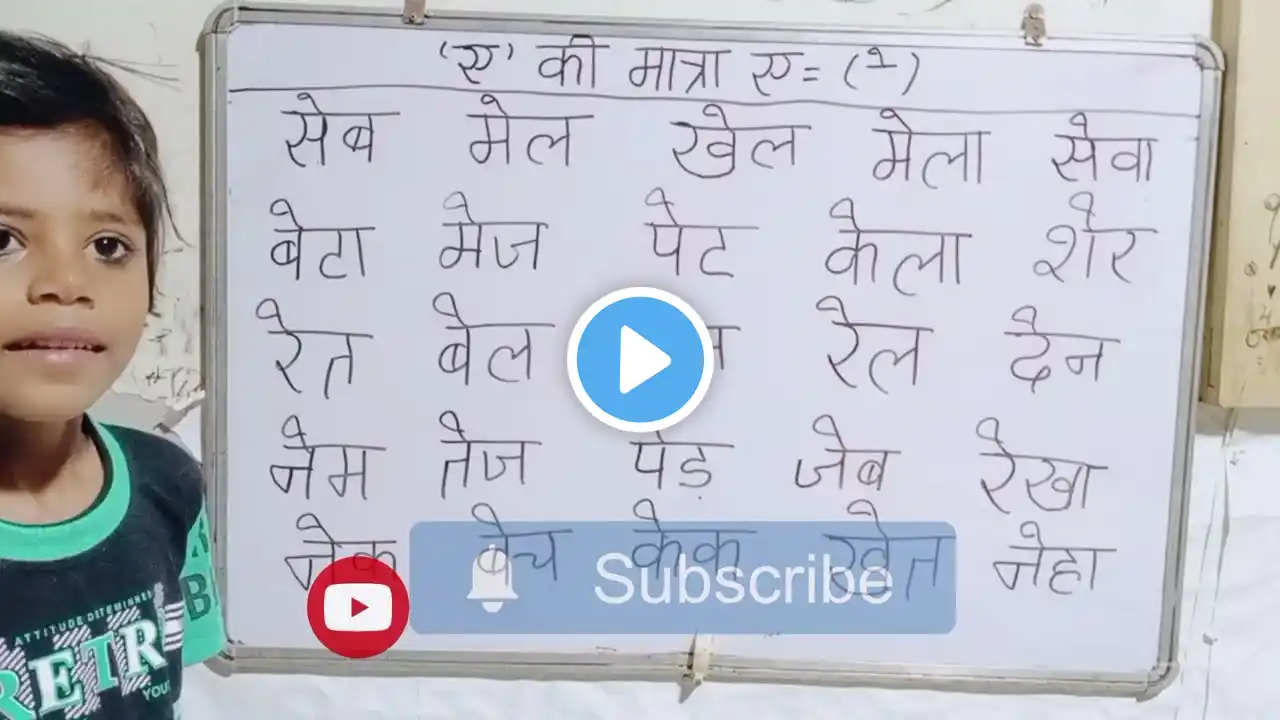 'ए' की मात्रा ए = ( े )
सेब मेल खेल मेला सेवा
बेटा मेज पेट केला शेर
रेत बेल रेल देन
नेम तेज पेड़ जेब रेखा
नेक बेच केक खेत नेहा
Subscribe
ATTITUDE DETERMINES
RETR
YOU
B